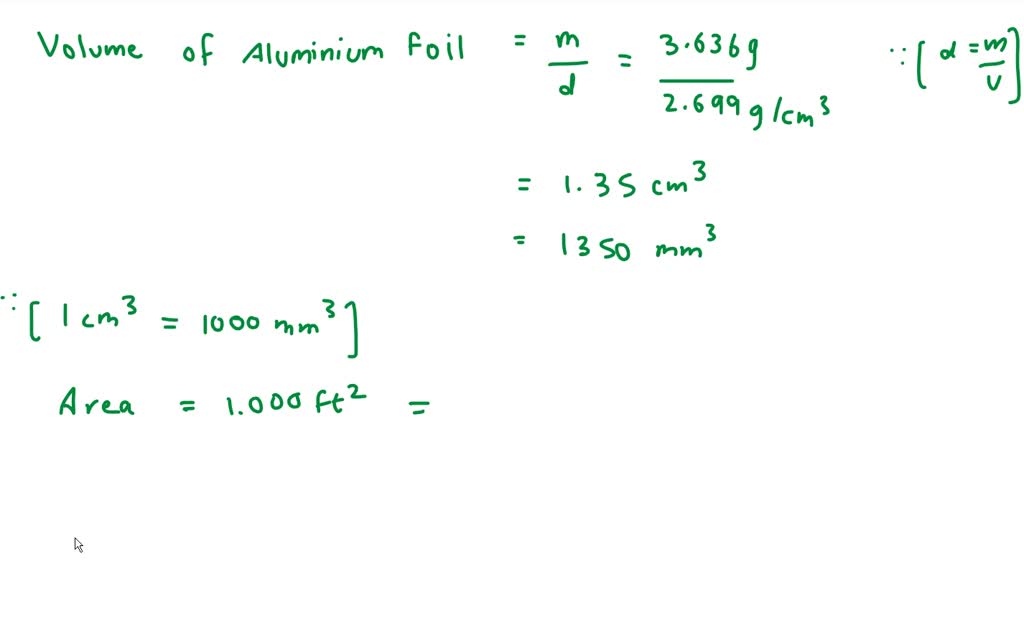 Volume of Aluminium Foil = m/d = 3.636g / 2.699 g/cm³ ∵ [d = m/v]
= 1.35 cm³
= 1350 mm³
∵ [1 cm³ = 1000 mm³]
Area = 1.000 ft² =